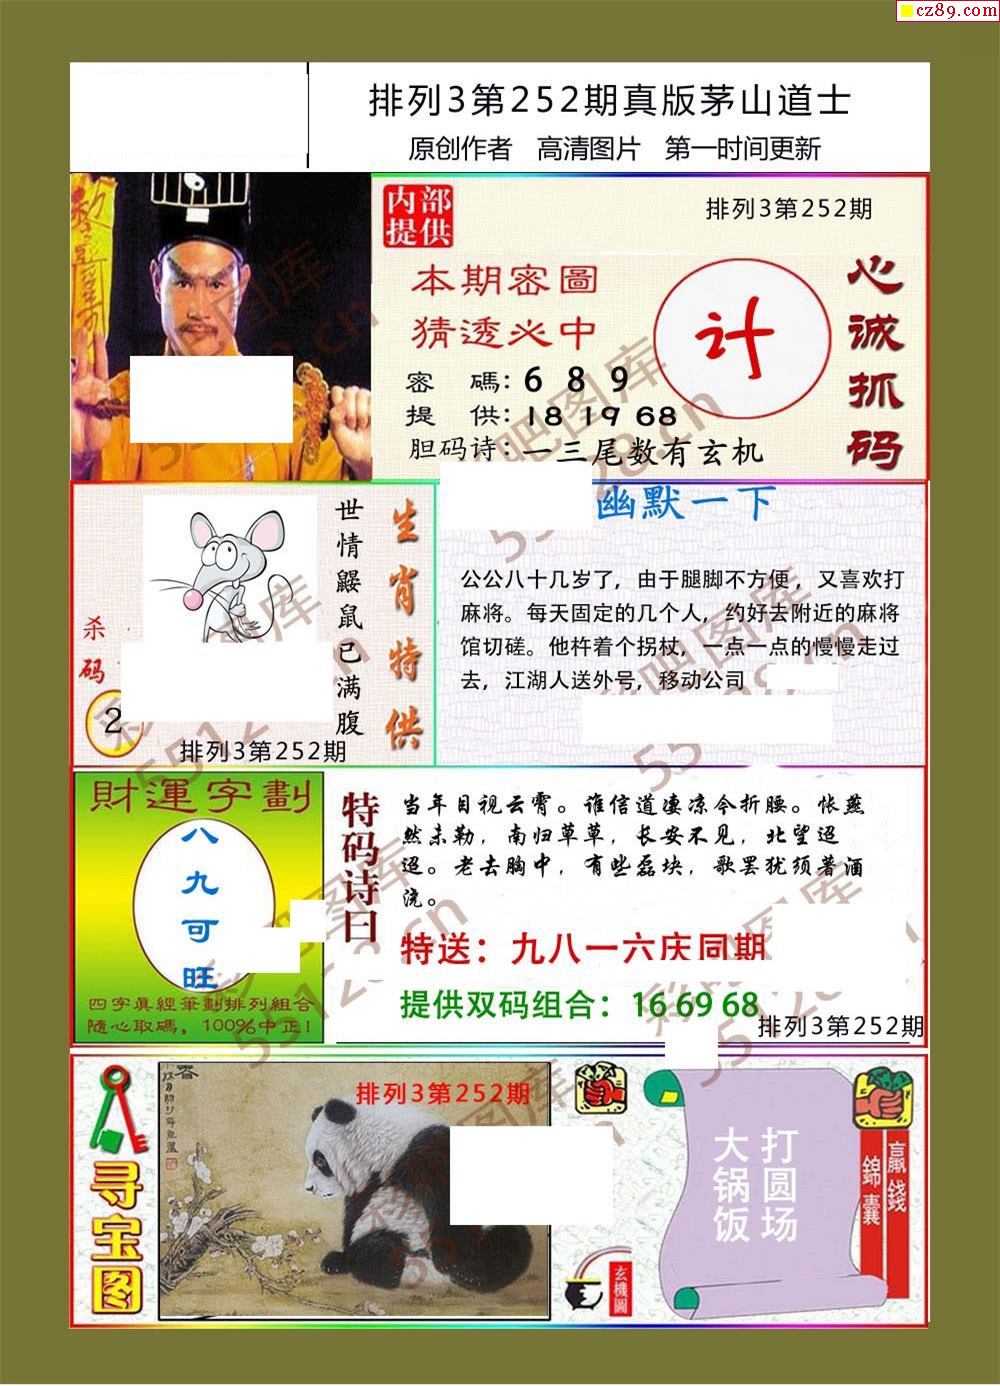 cz89.com
排列3第252期真版茅山道士
原创作者 高清图片 第一时间更新
内部
提供
排列3第252期
本期密圖
猜透必中
密 碼：6 8 9
提 供：18 19 68
胆码诗：一三尾数有玄机
计
心诚抓码
杀码
2
世情鼹鼠已满腹
生肖特供
排列3第252期
幽默一下
公公八十几岁了，由于腿脚不方便，又喜欢打
麻将。每天固定的几个人，约好去附近的麻将
馆切磋。他杵着个拐杖，一点一点的慢慢走过
去，江湖人送外号，移动公司
財運字劃
八九可旺
四字真經筆劃排列組合
隨心取碼，100%中正！
特码诗曰
当年目视云霄。谁信道凄凉今折腰。怅燕
然未勒，南归草草，长安不见，北望迢
迢。老去胸中，有些磊块，歌罢犹须著酒
浇。
特送：九八一六庆同期
提供双码组合：16 69 68
排列3第252期
寻宝图
排列3第252期
玄機圖
打圆场
大锅饭
贏錢
錦囊
彩吧图库
55128.cn